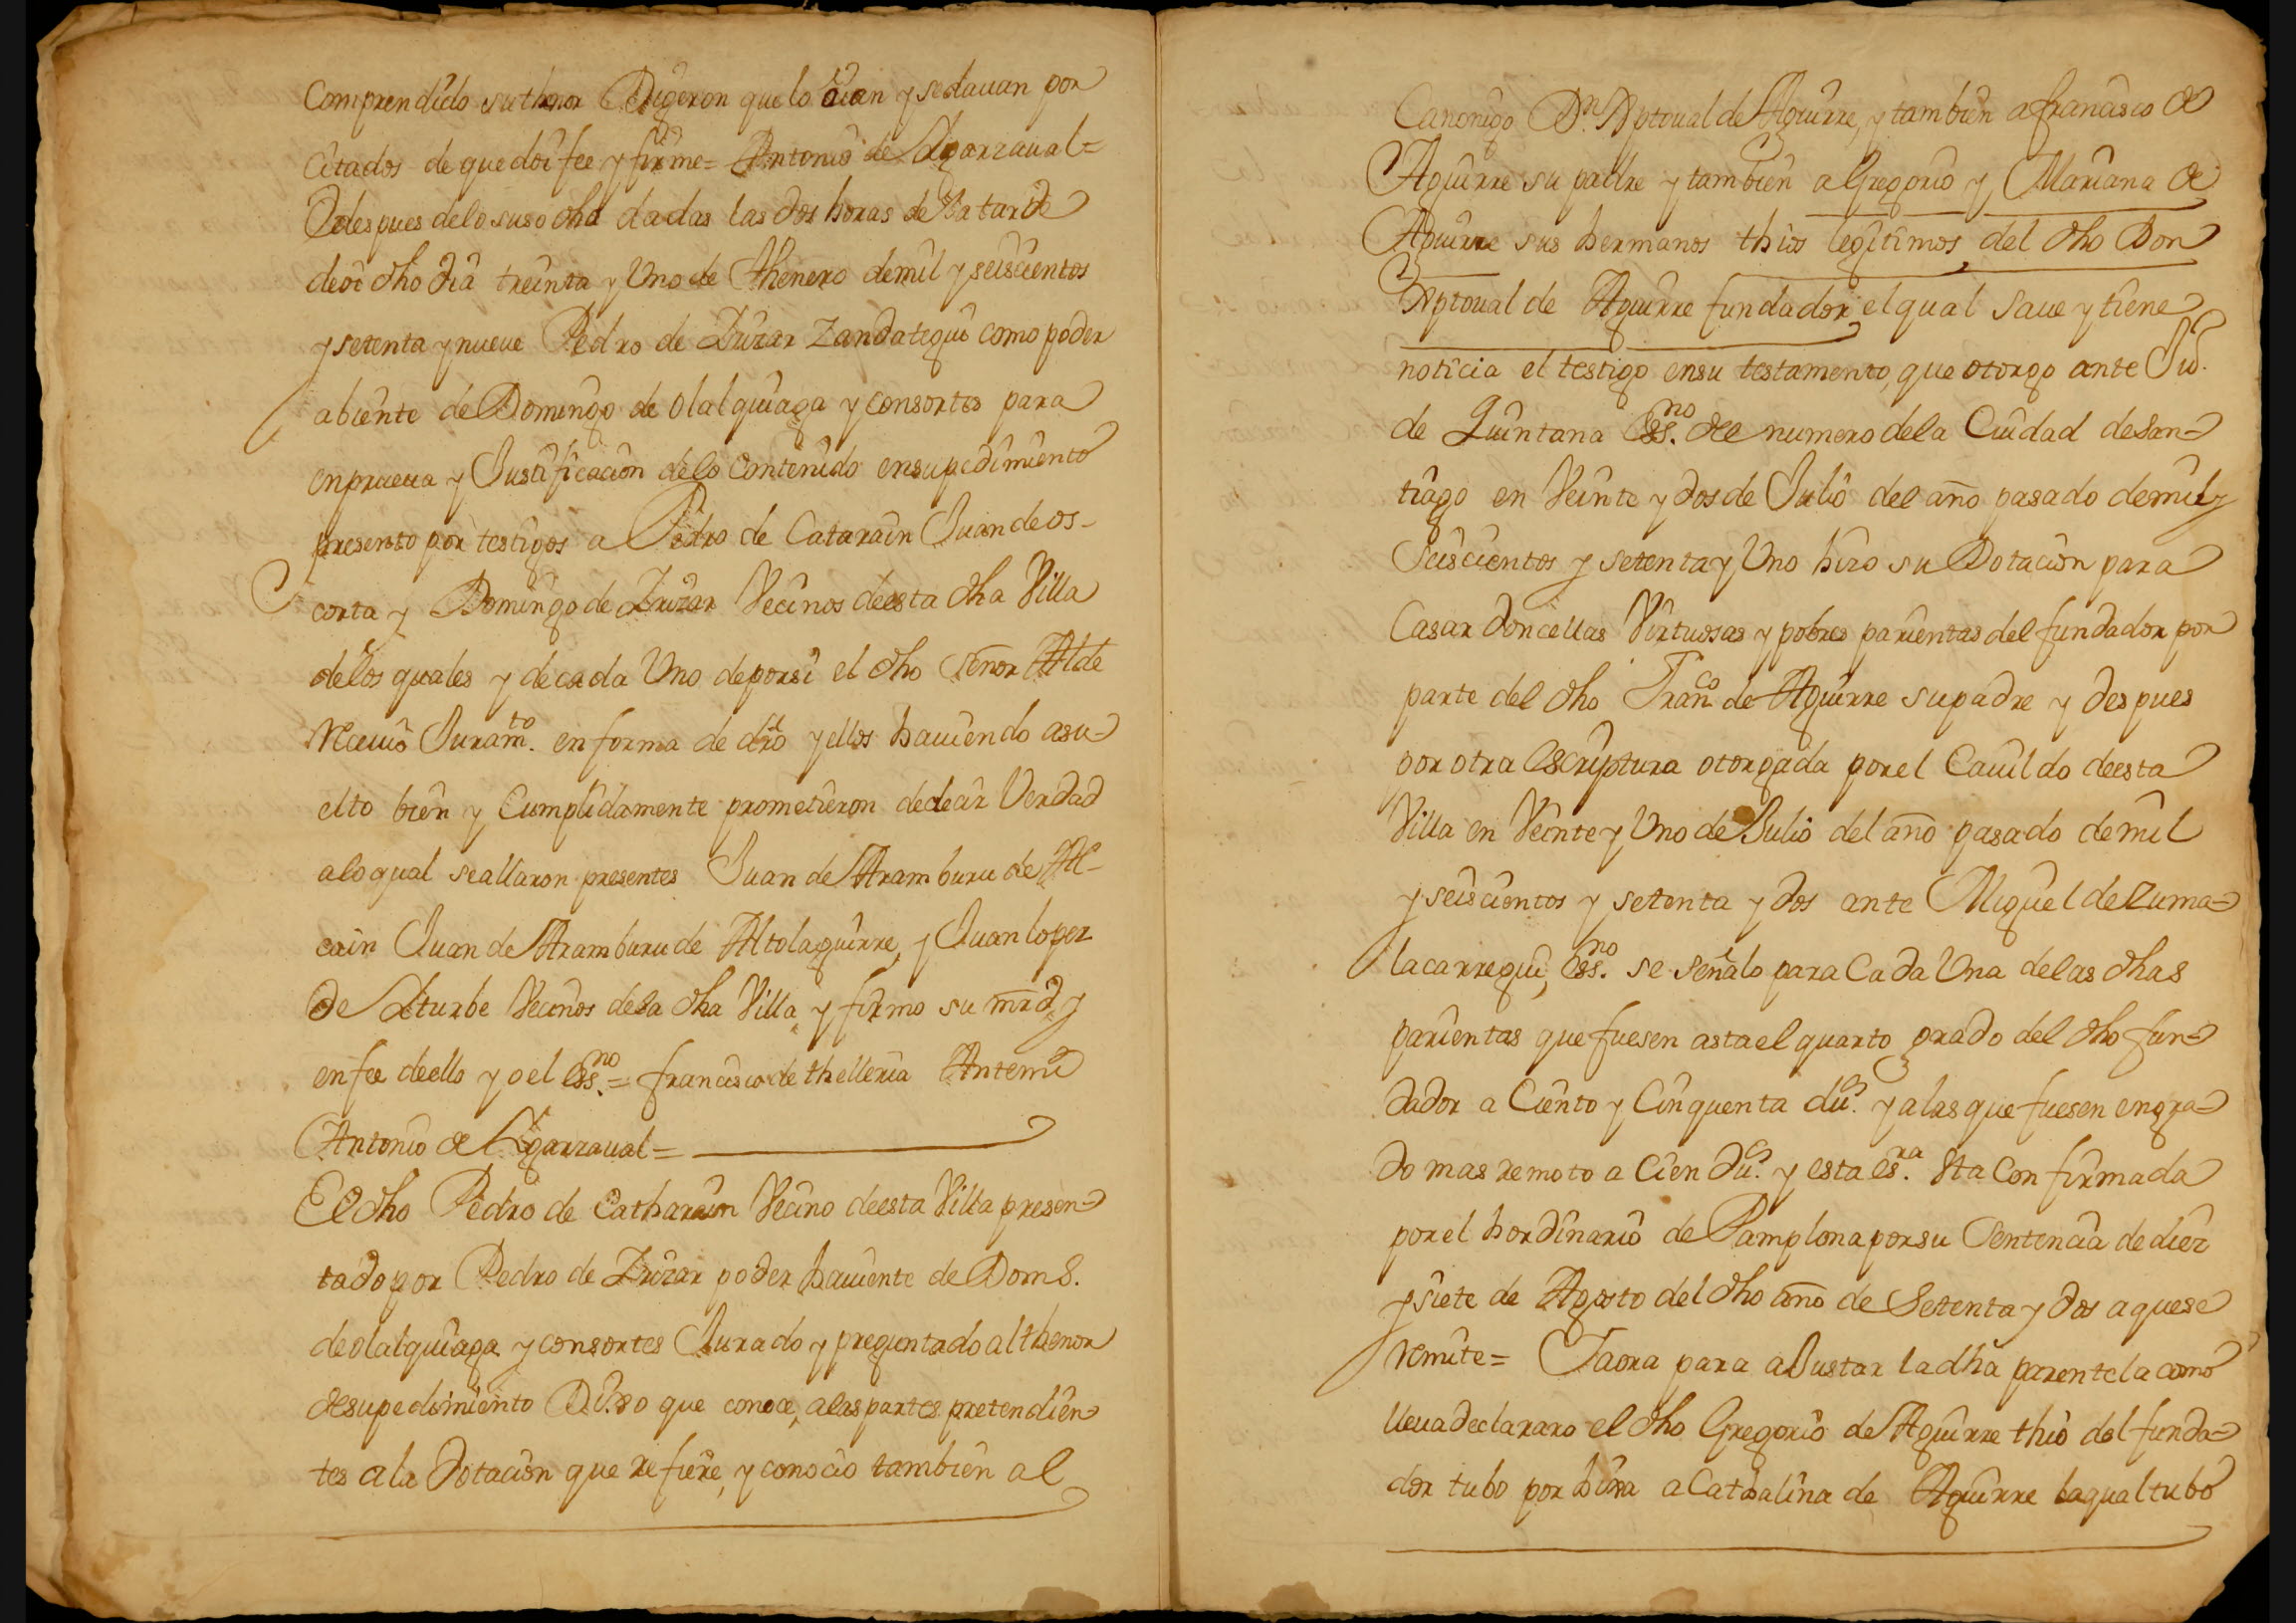 Comprendido su thenor Digeron que lo oian y se dauan por
Citados de que doi fee y firme = Antonio de Ygarzaual =
E despues de lo suso dho dadas las dos horas de la tarde
de oi dho dia treinta y Uno de Henero de mil y seiscientos
y setenta y nueue Pedro de Yrizar Zandategui como poder
abiente de Domingo de olalquiaga y consortes para
en prueua y Justificacion de lo Contenido en su pedimiento
presento por testigos a Pedro de Catarain Juan de os-
corta y Domingo de Yrizar Vecinos de esta dha Villa
de los quales y de cada Uno de por si el dho Señor Alde
reciuio Juramto. en forma de dro y ellos hauiendo asu-
elto bien y Cumplidamente prometieron de decir Verdad
a lo qual se allaron presentes Juan de Aramburu de Al-
cain Juan de Aramburu de Altolaguirre, y Juan lopez
de Yturbe Vecinos de la dha Villa, y firmo su mrd y
en fee de ello yo el essno. = francisco de thelleria Antemi
Antonio de Ygarzaual =
El dho Pedro de Catharain Vecino de esta Villa presen-
tado por Pedro de Yrizar poder hauiente de Domo.
de olalquiaga y consortes Jurado y preguntado al thenor
de su pedimiento Dixo que conoce, a las partes pretendien-
tes a la Dotacion que refiere, y conocio tambien al
Canonigo Dn. Xptoual de Aguirre, y tambien a francisco de
Aguirre su padre y tambien a Gregorio y Mariana de
Aguirre sus hermanos thios legitimos del dho Don
Xptoual de Aguirre fundador el qual Saue y tiene
noticia el testigo en su testamento, que otorgo ante Ju.
de Quintana essno. del numero de la Ciudad de San-
tiago en Veinte y dos de Julio del año pasado de mil y
Seiscientos y setenta y Uno hizo su Dotacion para
Casar doncellas Virtuosas y pobres parientas del fundador por
parte del dho Franco de Aguirre su padre y despues
por otra escriptura otorgada por el Cauildo de esta
Villa en Veinte y Uno de Julio del año pasado de mil
y seiscientos y setenta y dos ante Miguel de Zuma-
lacarregui, essno. se señalo para Cada Una de las dhas
parientas que fuesen asta el quarto grado del dho fun-
dador a Ciento y Cinquenta dus. y a las que fuesen en gra-
do mas remoto a Cien dus. y esta esra. Sta Confirmada
por el hordinario de Pamplona por su Sentencia de diez
y siete de Agosto del dho año de Setenta y dos a que se
remite = Y aora para aJustar la dha parentela como
lleua declararo el dho Gregorio de Aguirre thio del funda-
dor tubo por hija a Cathalina de Aguirre la qual tubo